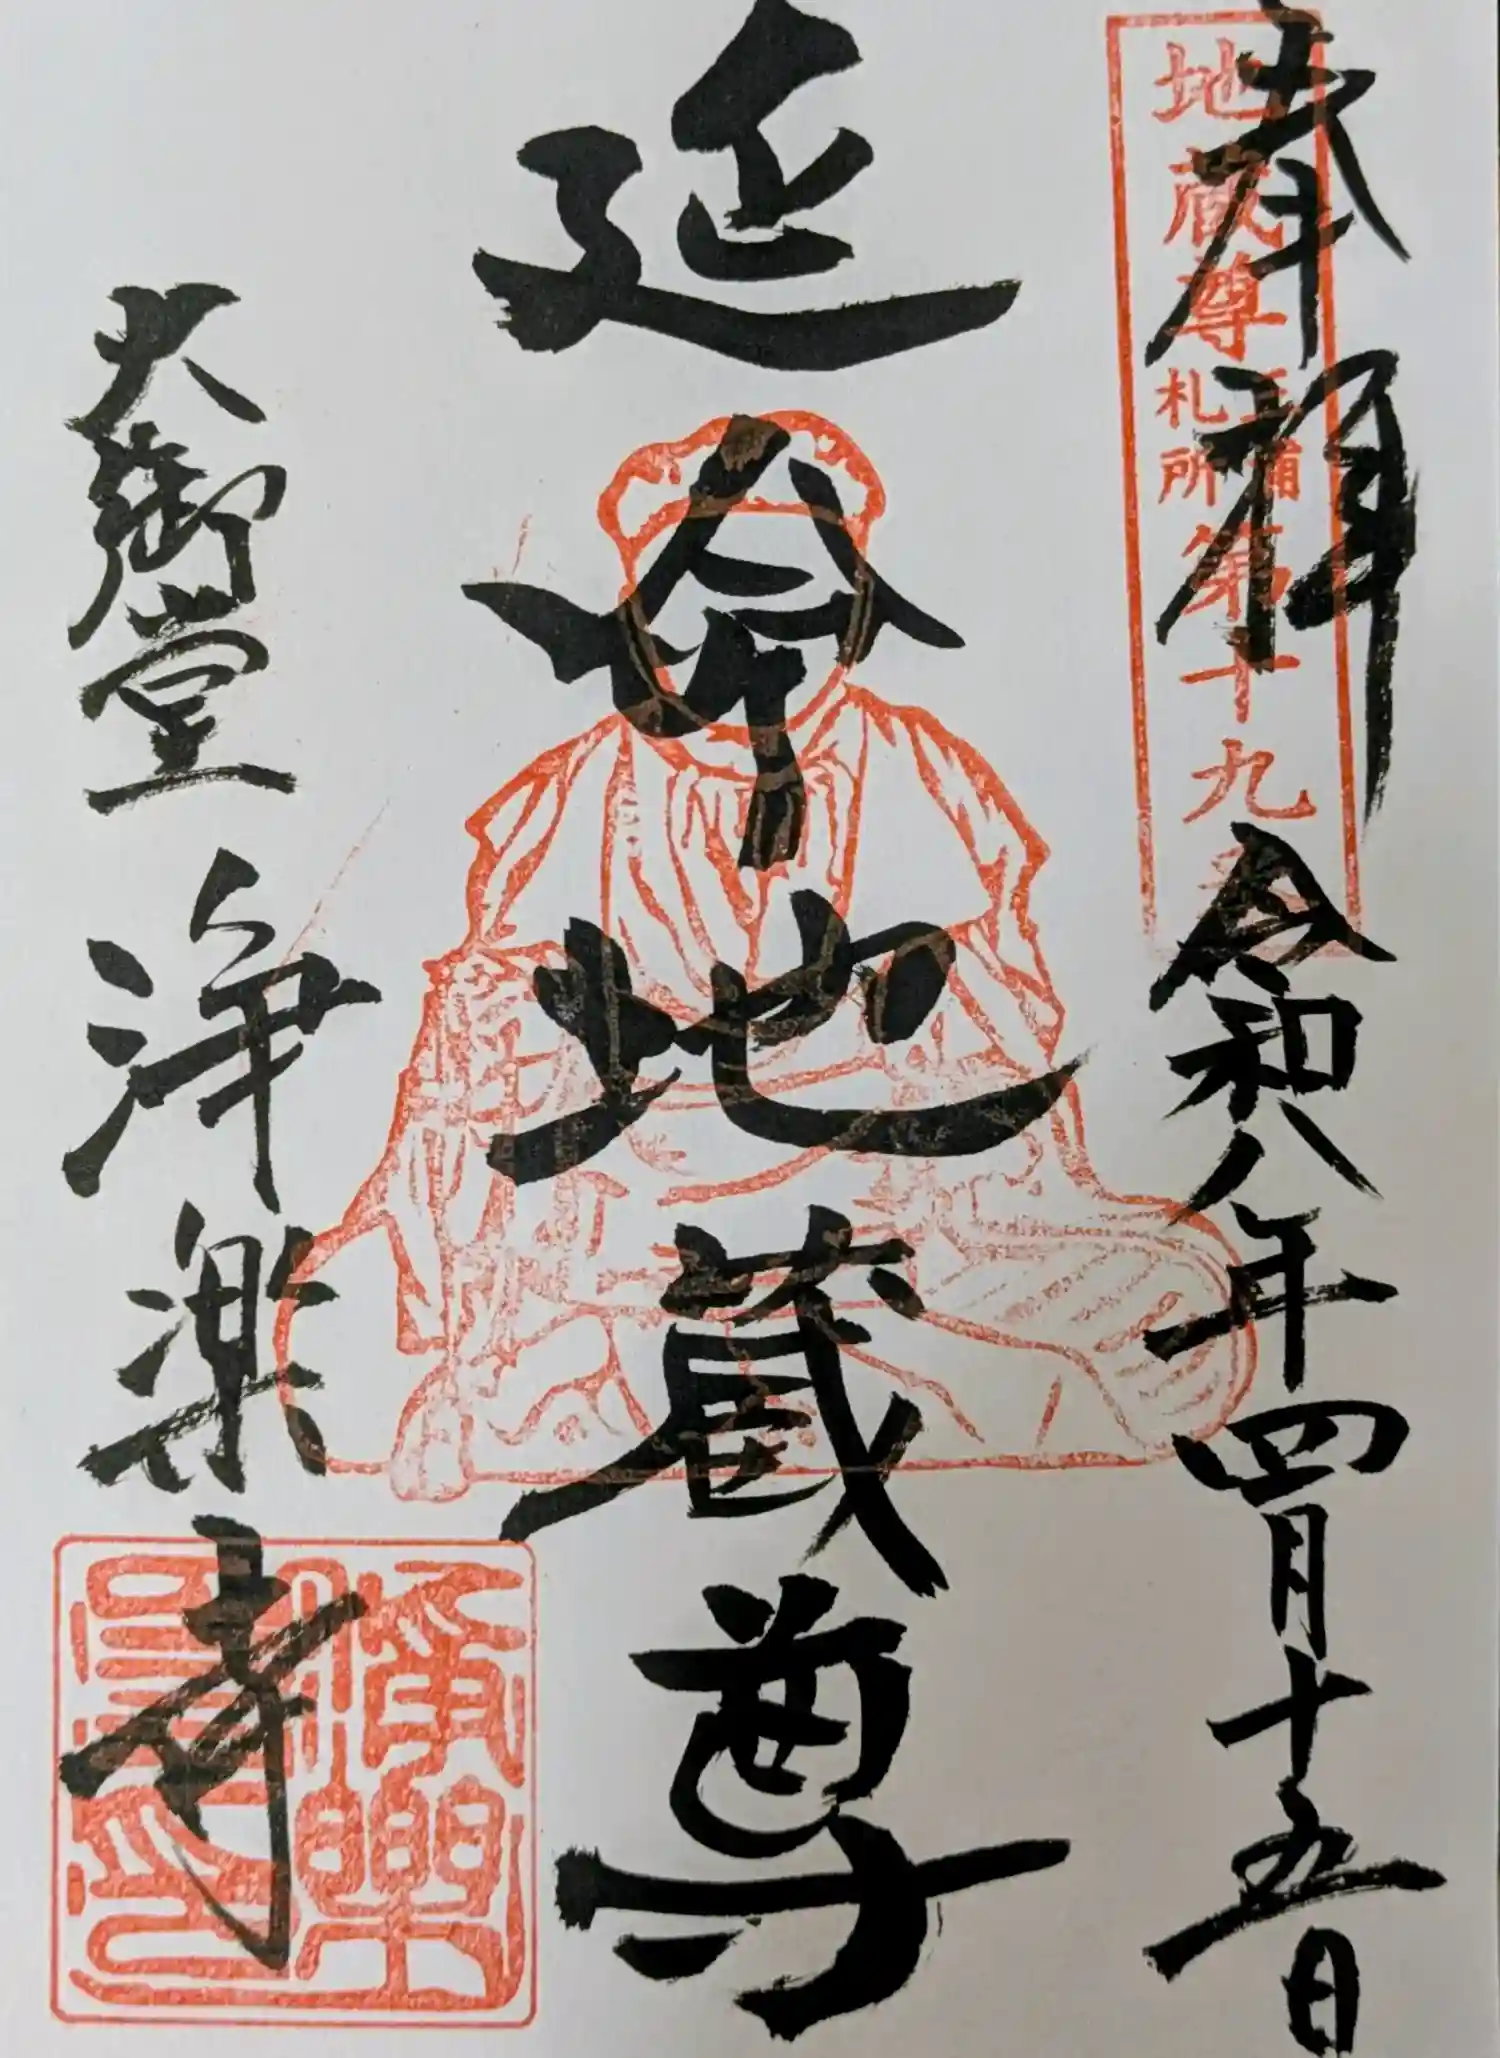 奉拝
令和八年四月十五日
地蔵尊
三浦
札所
第十九
延命地蔵尊
大御堂
浄楽寺